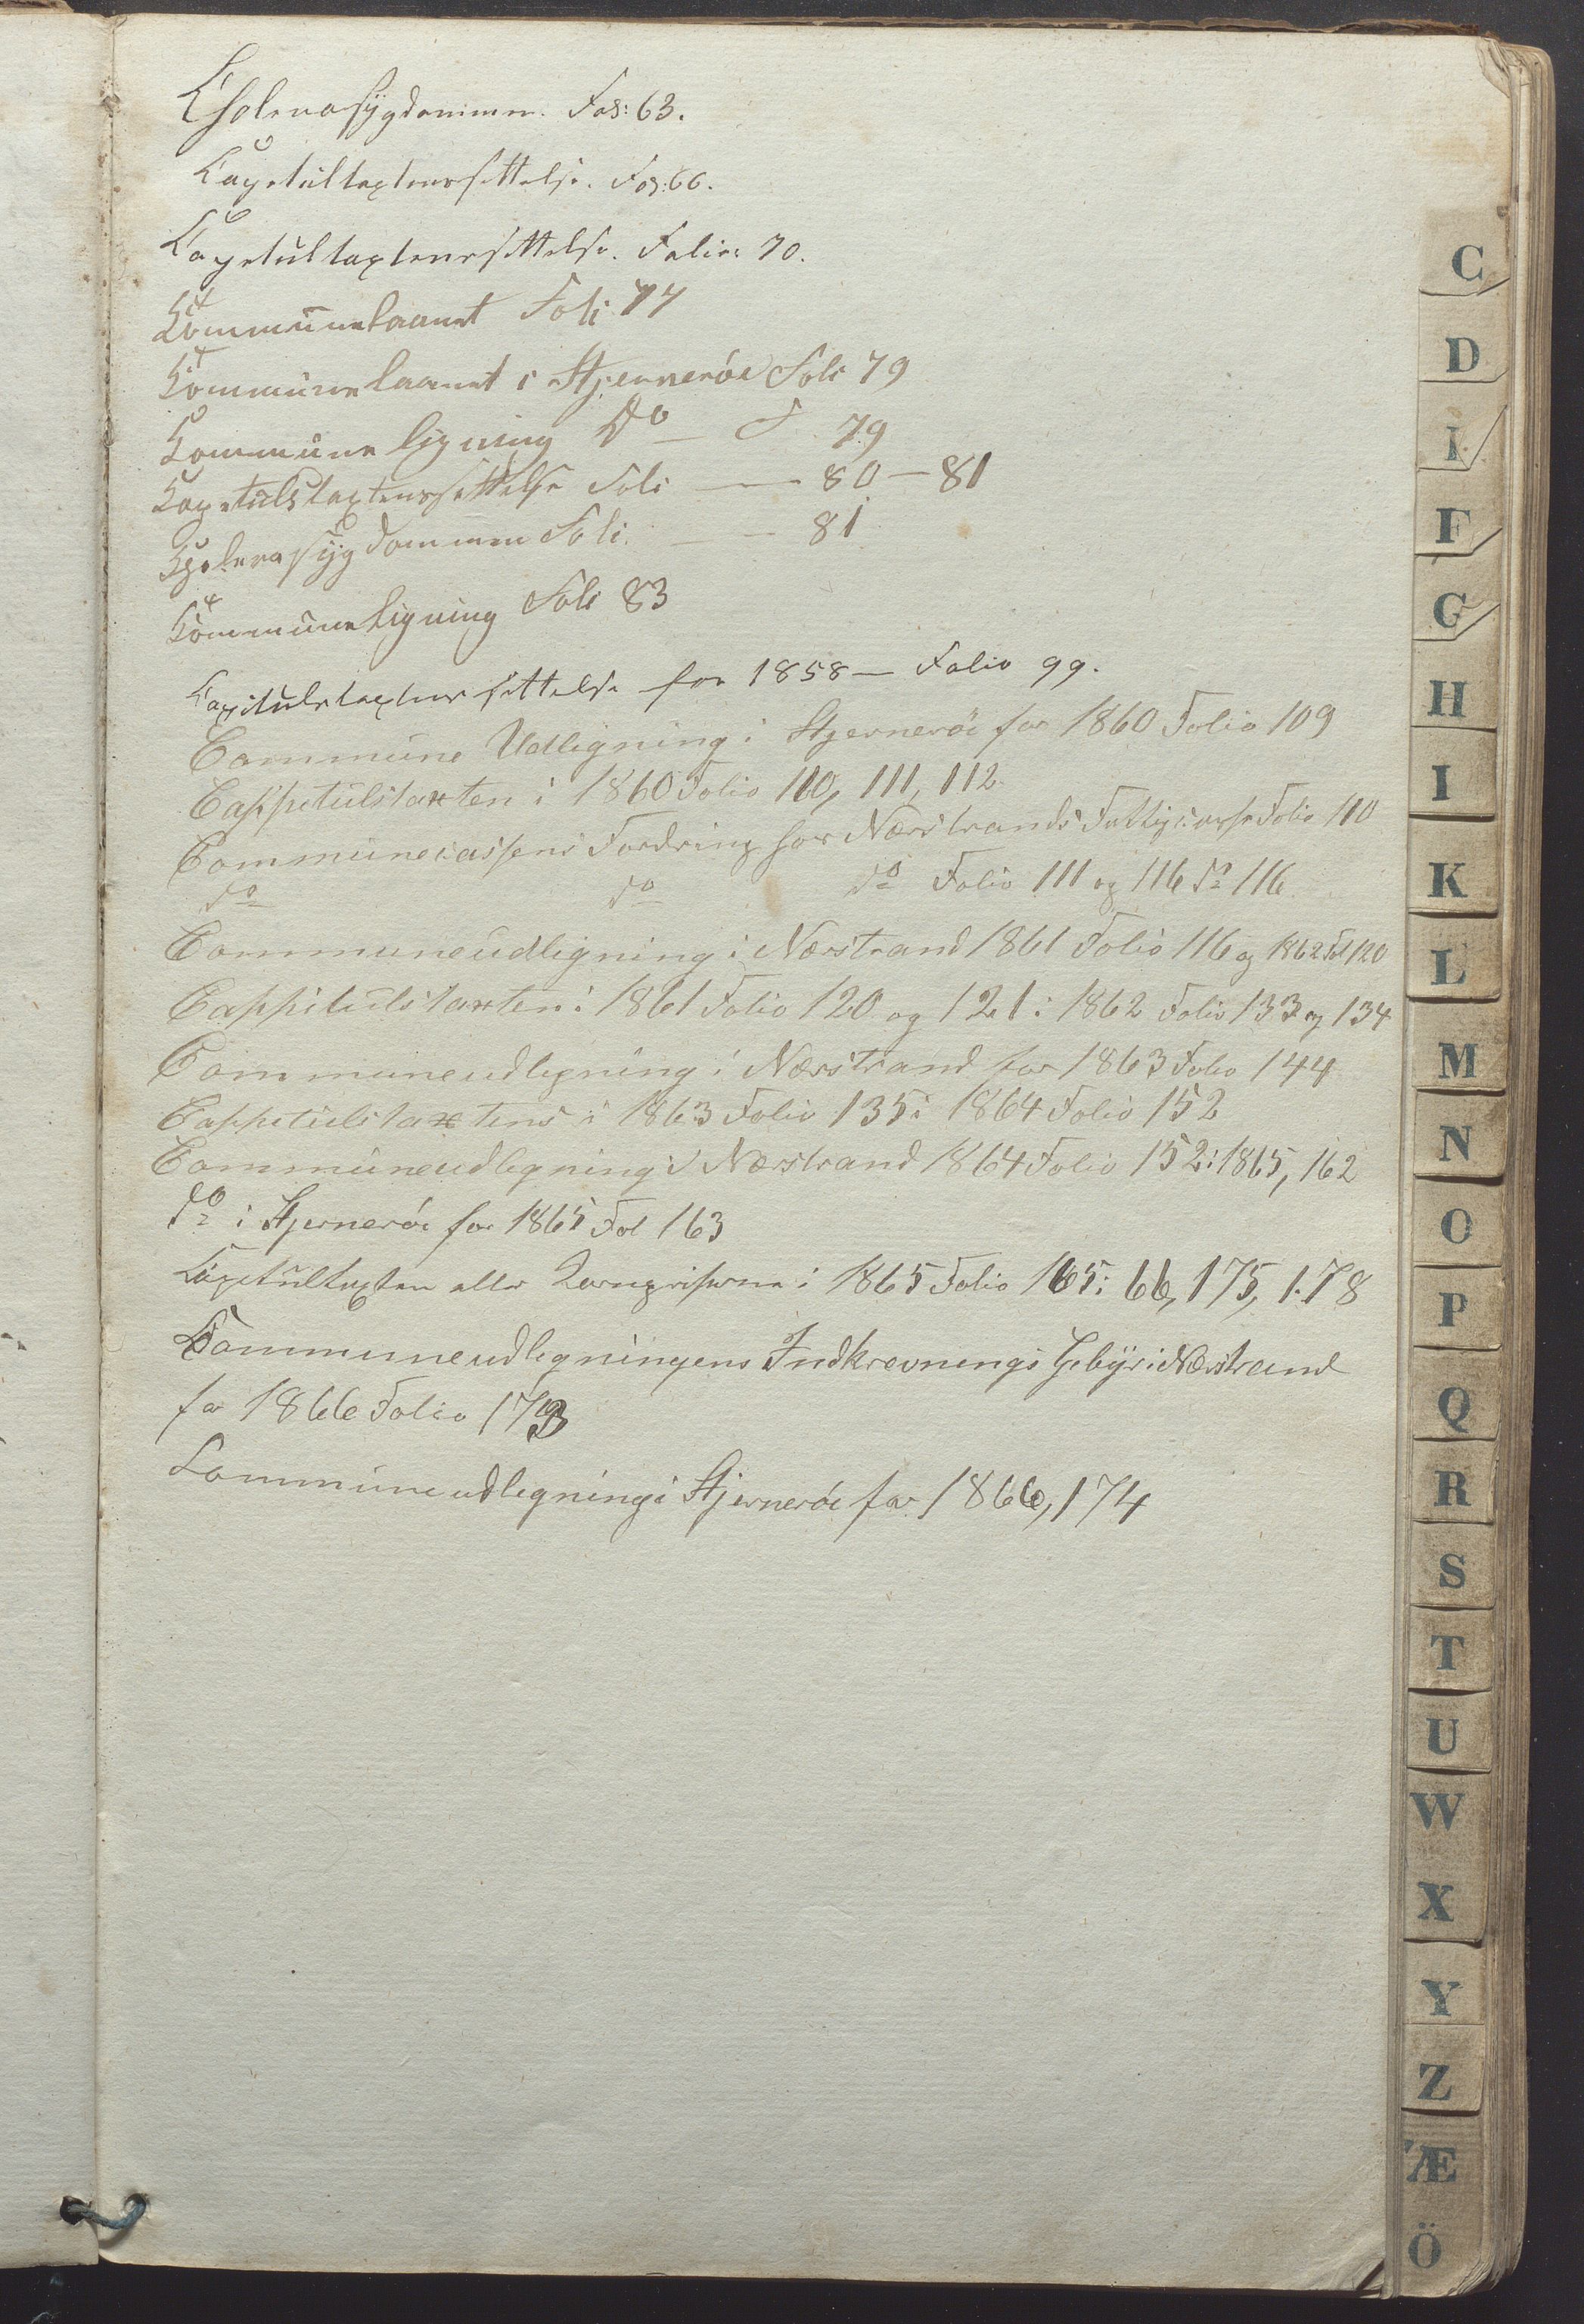 Cholerasygdommen. Fol: 63.
Capitultaxtenssettelse. Fol: 66.
Capitultaxtenssettelse. Folio: 70.
Communelaanet Foli 77
Communelaanet i Hjernerøe Foli 79
Communeligning Do — F 79
Capitulstaxtenssettelse Foli — 80 — 81
Cholerasygdommen Foli — 81
Communeligning Foli 83
Capitulstaxtenssettelse for 1858 — Folio 99.
Commune Udligning i Hjernerøe for 1860 Folio 109
Cappitulstaxten i 1860 Folio 110, 111, 112
Communecassens Fordring hos Nærstrands Fattigcasse Folio 110
do do do Folio 111 og 116 do 116
Communeudligning i Nærstrand 1861 Folio 116 og 1862 Fol 120
Cappitulstaxten i 1861 Folio 120 og 121: 1862 Folio 133 og 134
Communeudligning i Nærstrand for 1863 Folio 144
Cappitulstaxtens i 1863 Folio 135: 1864 Folio 152
Communeudligning i Nærstrand 1864 Folio 152: 1865, 162
do i Hjernerøe for 1865 Fol 163
Capitultaxten eller Kornpriserne i 1865 Folio 165: 66, 175, 178
Communeudligningens Indkrævnings Gebyr i Nærstrand
for 1866 Folio 173
Communeudligning i Hjernerøe for 1866, 174
C
D
F
G
H
I
K
L
M
N
O
P
Q
R
S
T
U
W
X
Y
Z
Æ
Ö